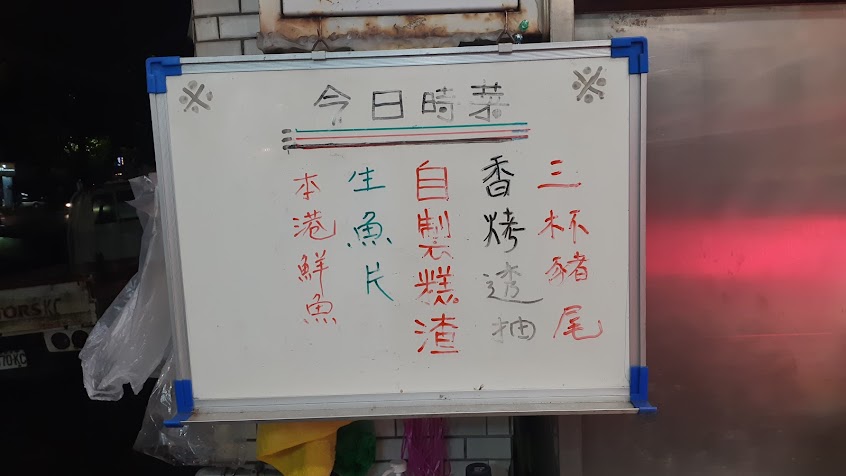 ※ 今日時菜 ※
三杯豬尾
香烤透抽
自製糕渣
生魚片
本港鮮魚